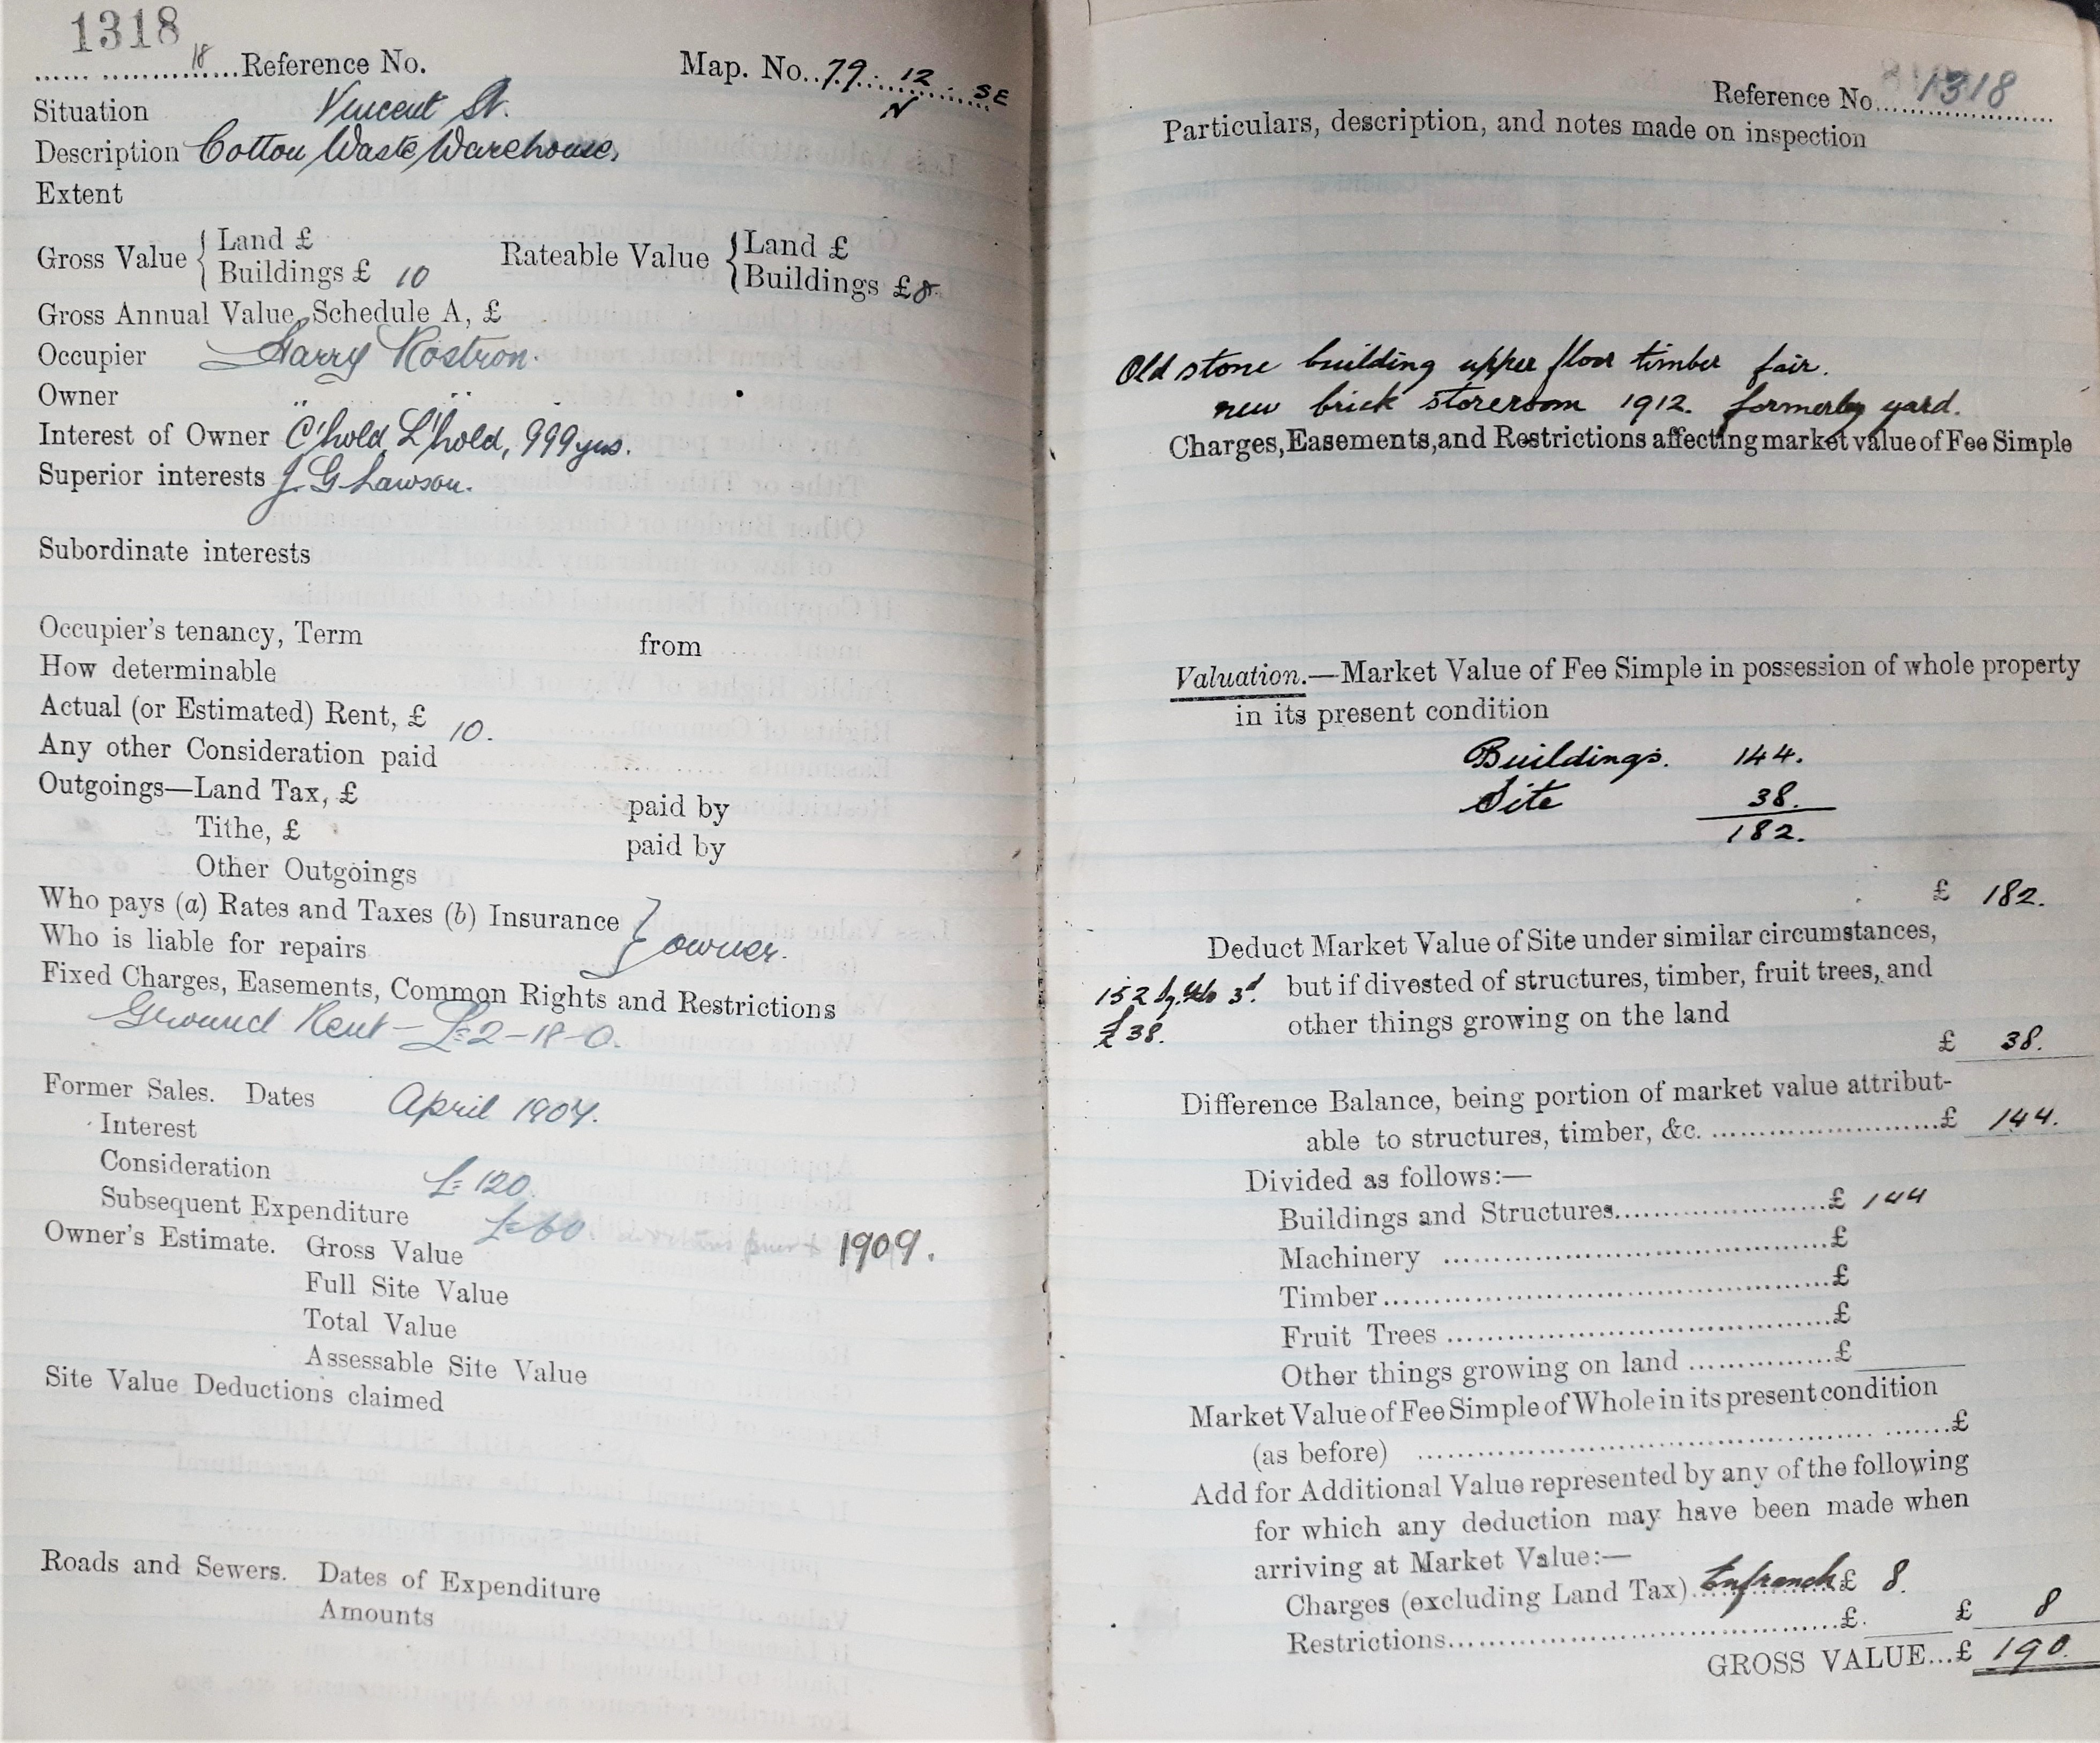 1318
18 Reference No. Map. No. 79. 12. SE
N
Situation Vincent St.
Description Cotton Waste Warehouse,
Extent
Gross Value { Land £ Rateable Value { Land £
Buildings £ 10 Buildings £ 8
Gross Annual Value, Schedule A, £
Occupier Harry Rostron.
Owner " "
Interest of Owner C'hold L'hold, 999 yrs.
Superior interests J. G. Lawson.
Subordinate interests
Occupier's tenancy, Term from
How determinable
Actual (or Estimated) Rent, £ 10.
Any other Consideration paid
Outgoings—Land Tax, £ paid by
Tithe, £ paid by
Other Outgoings
Who pays (a) Rates and Taxes (b) Insurance } owner.
Who is liable for repairs
Fixed Charges, Easements, Common Rights and Restrictions
Ground Rent - £2-18-0.
Former Sales. Dates April 1907.
Interest
Consideration £120.
Subsequent Expenditure £60. 1909.
Owner's Estimate. Gross Value
Full Site Value
Total Value
Assessable Site Value
Site Value Deductions claimed
Roads and Sewers. Dates of Expenditure
Amounts
Reference No. 1318
Particulars, description, and notes made on inspection
Old stone building upper floor timber fair.
new brick storeroom 1912. formerly yard.
Charges, Easements, and Restrictions affecting market value of Fee Simple
Valuation.—Market Value of Fee Simple in possession of whole property
in its present condition
Buildings. 144.
Site 38.
182.
£ 182.
Deduct Market Value of Site under similar circumstances,
152 Sq. Yds 3d. but if divested of structures, timber, fruit trees, and
£38. other things growing on the land
£ 38.
Difference Balance, being portion of market value attribut-
able to structures, timber, &c. £ 144.
Divided as follows:—
Buildings and Structures £ 144
Machinery £
Timber £
Fruit Trees £
Other things growing on land £
Market Value of Fee Simple of Whole in its present condition
(as before) £
Add for Additional Value represented by any of the following
for which any deduction may have been made when
arriving at Market Value:—
Charges (excluding Land Tax) Enfranch £ 8.
Restrictions £ £ 8
GROSS VALUE...£ 190.